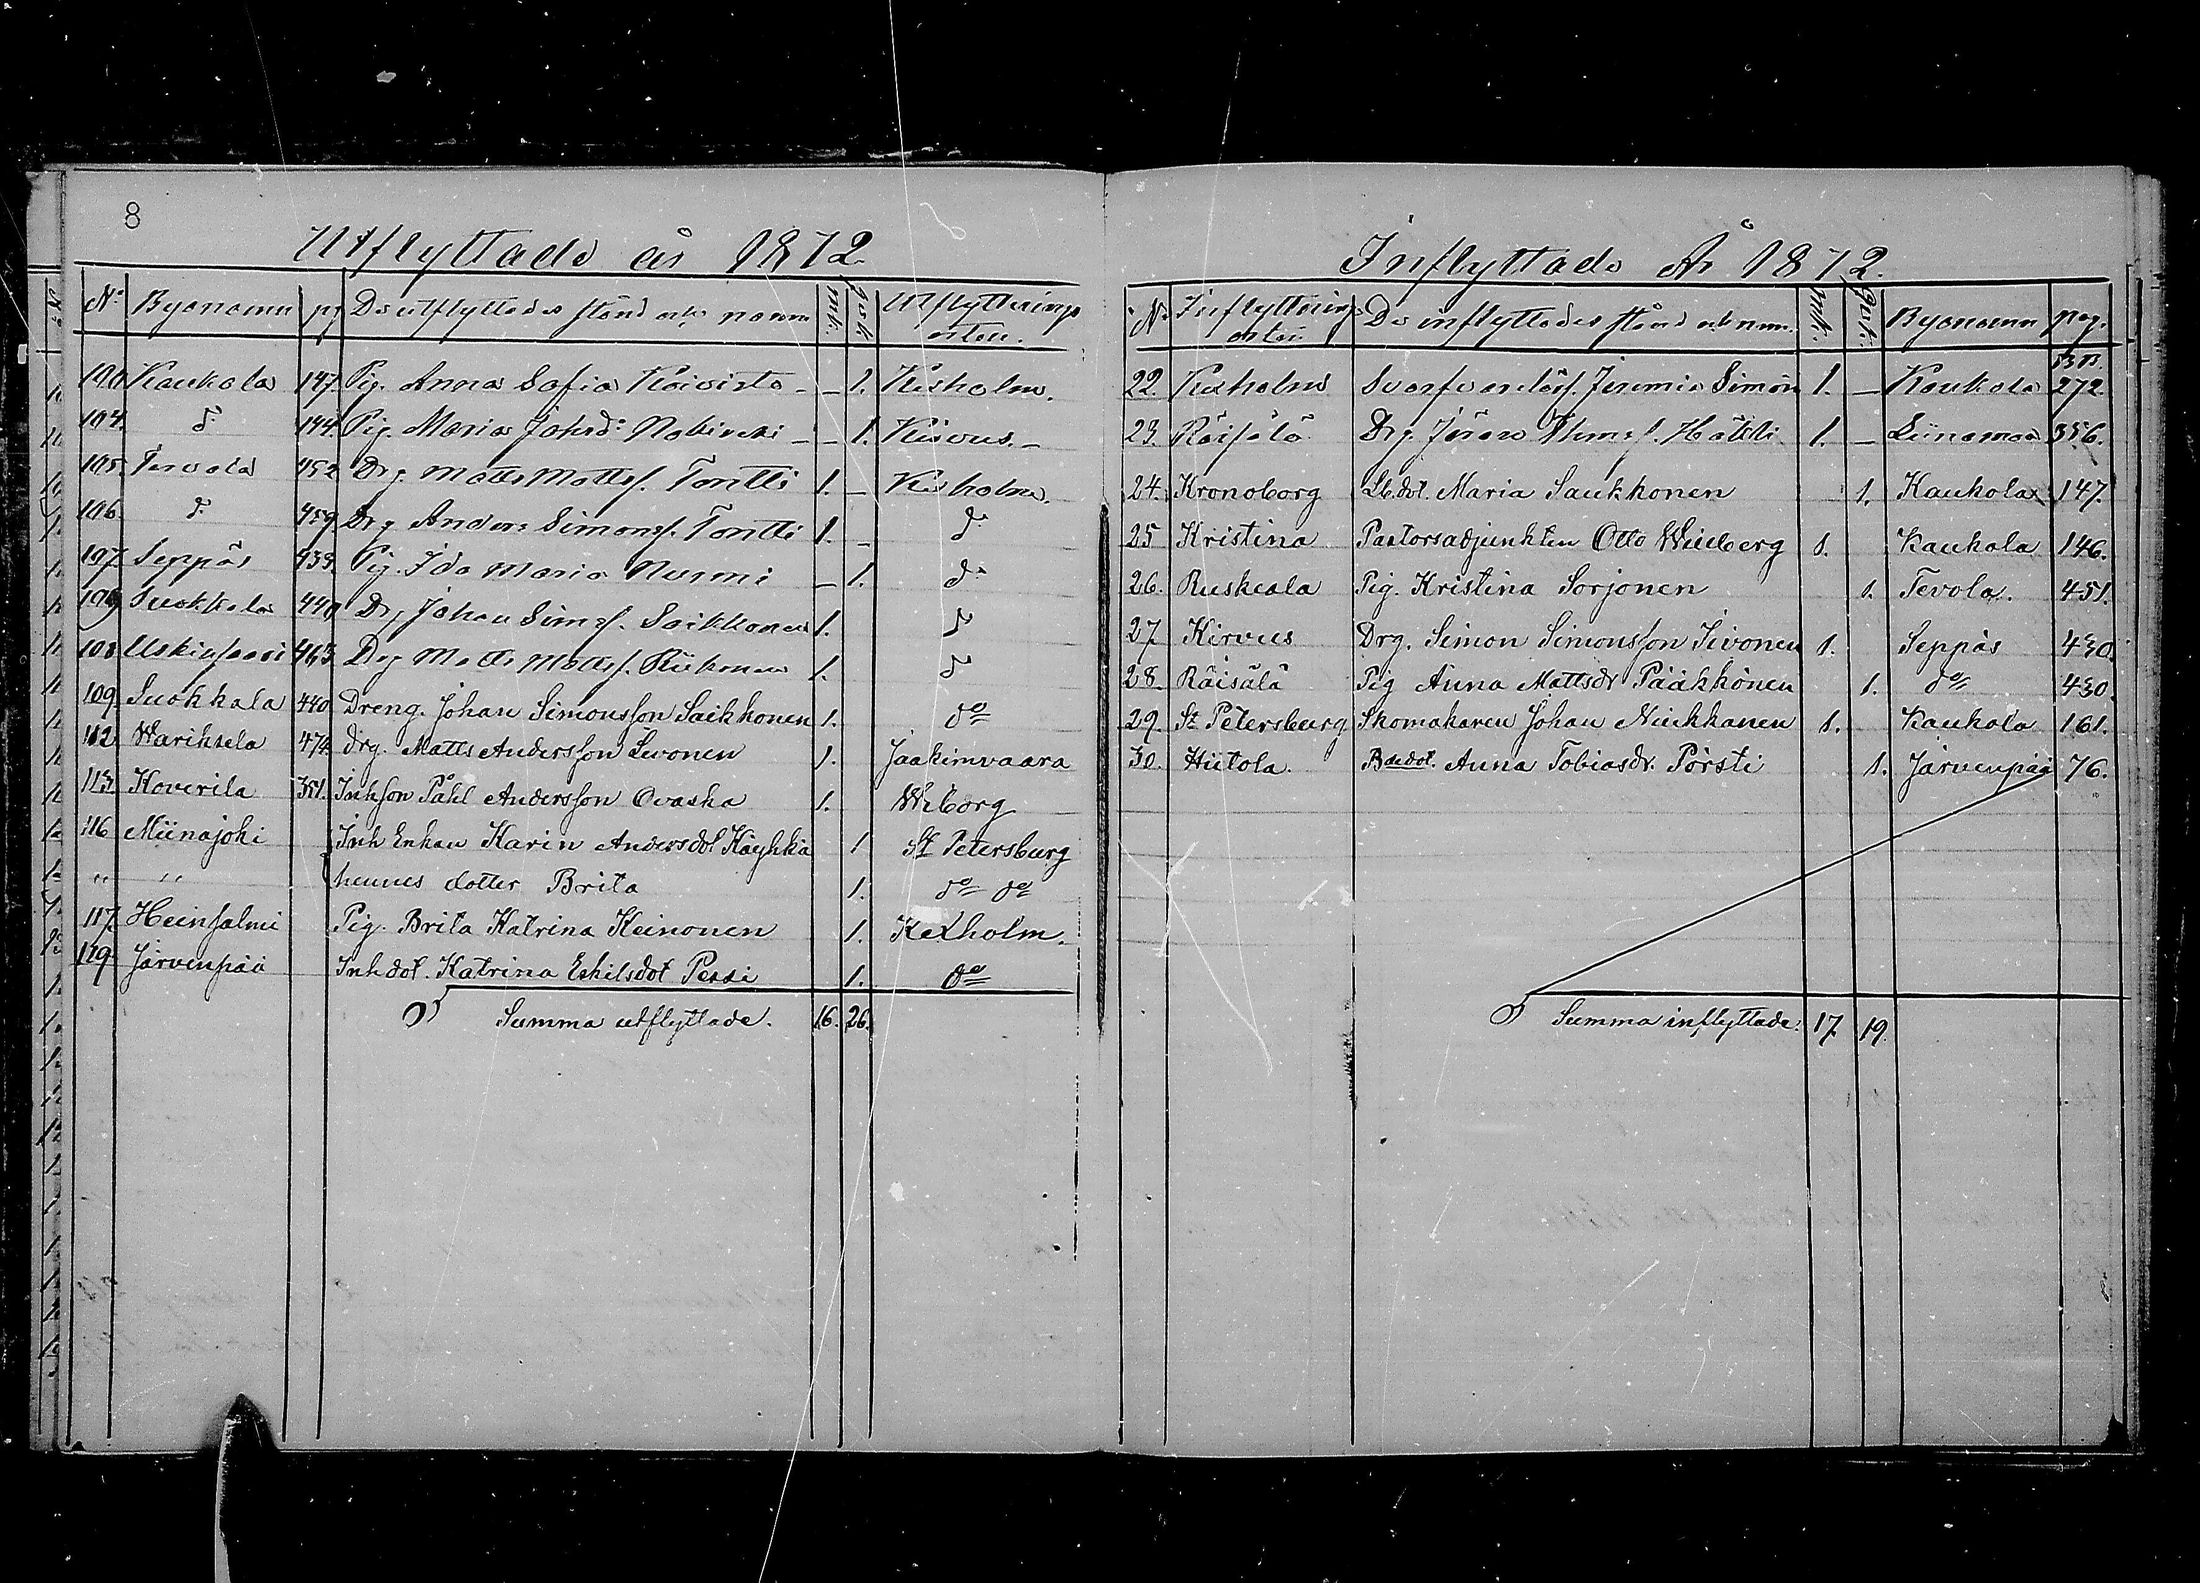 8
Utflyttade år 1872.
No Byanamn pg De utflyttades stånd och namn Mk. Qvk. Utflyttnings orten.
Kaukola 147. Pig. Anna Sofia Koivisto - - 1. Kexholm.
104. do 144. Pig. Maria Johsdr - - 1. Kirvus. -
105. Tervola 452 Drg. Matts Mattss. Tontti 1. - Kexholm.
106. do 459. Drg Anders Simonss. Tontti 1. - do
107. Seppäs 433. Pig. Ida Maria Nurmi - 1. do
Suokkola 440 Drg Johan Simss. Saikkonen 1. do
108 463. Drg Matts Mattss. 1. do
109. Suokkala 440 Dreng. Johan Simonsson Saikkonen 1. do
112. Wariksela 474. Drg. Matts Andersson Levonen 1. Jaakimvaara
113. Koverila 351. Inhson Påhl Andersson Ovaska 1. Wiborg
116 Miinajoki Inh Enkan Karin Andersdot Käyhkä 1 St Petersburg
" " hennes dotter Brita 1. do do
117. Heinsalmi Pig. Brita Katrina Keinonen 1. Kexholm.
119. Järvenpää Inhdot. Katrina Eskilsdot Pessi 1. do
Summa utflyttade. 16. 26.
Inflyttade År 1872.
No Inflyttnings orten. De inflyttades stånd och namn. Mk. Qvk. Byanamn pag.
22. Kexholm Jeremia Simon 1. - Kaukola 272.
23. Räisälä Drg. Thmss. 1. - Liinamaa 356.
24. Kronoborg Lb.dot. Maria Saukkonen 1. Kaukola 147.
25 Kristina Pastorsadjunkten Otto Winberg 1. Kaukola 146.
26. Ruskeala Pig. Kristina Sorjonen 1. Tevola. 451.
27 Kirvus Drg. Simon Simonsson Sivonen 1. Seppäs 430.
28. Räisälä Pig Anna Mattsdr Pääkkönen 1. do 430.
29. St Petersburg Skomakaren Johan Niukkanen 1. Kaukola 161.
30. Hiitola. Bdedot. Anna Tobiasdr. Pörsti 1. Järvenpää 76.
Summa inflyttade: 17. 19.